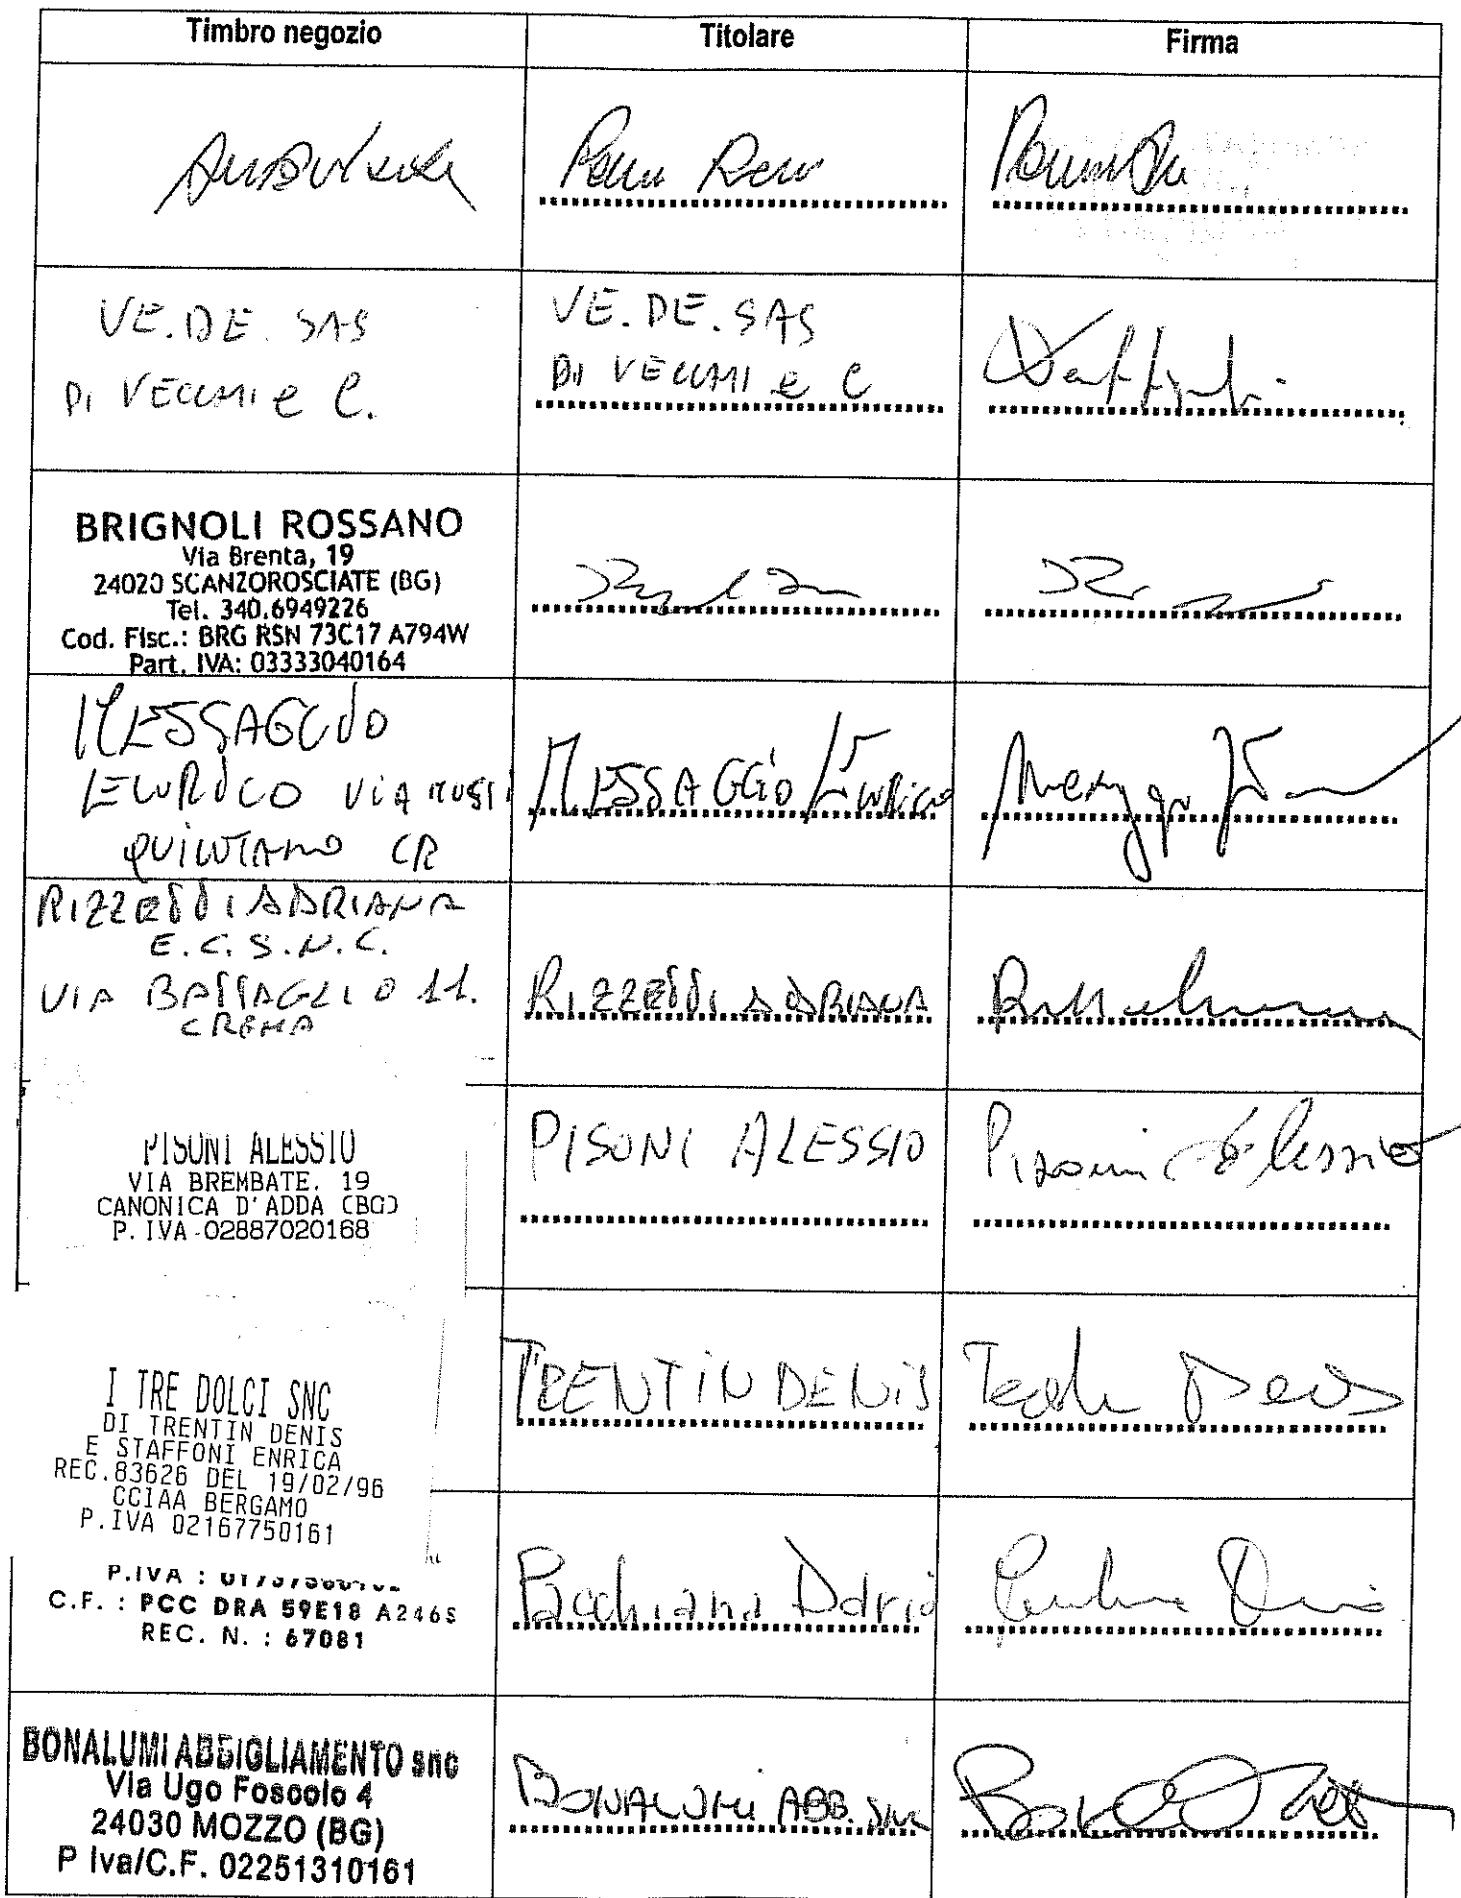 Timbro negozio Titolare Firma
VE.DE. SAS
DI VECCHI e C.
VE.DE.SAS
DI VECCHI e C
BRIGNOLI ROSSANO
Via Brenta, 19
24020 SCANZOROSCIATE (BG)
Tel. 340.6949226
Cod. Fisc.: BRG RSN 73C17 A794W
Part. IVA: 03333040164
MESSAGGIO
ENRICO VIA
QUINTANO CR
MESSAGGIO ENRICO
RIZZETTI ADRIANA
E.C.S.N.C.
VIA BATTAGLIO 11.
CREMA
RIZZETTI ADRIANA
PISONI ALESSIO
VIA BREMBATE. 19
CANONICA D'ADDA (BG)
P.IVA 02887020168
PISONI ALESSIO
Pisoni Alessio
I TRE DOLCI SNC
DI TRENTIN DENIS
E STAFFONI ENRICA
REC.83626 DEL 19/02/96
CCIAA BERGAMO
P.IVA 02167750161
TRENTIN DENIS
Denis
P.IVA :
C.F. : PCC DRA 59E18 A246S
REC. N. : 67081
Pacchiana Dario
BONALUMI ABBIGLIAMENTO snc
Via Ugo Foscolo 4
24030 MOZZO (BG)
P Iva/C.F. 02251310161
BONALUMI ABB. SNC